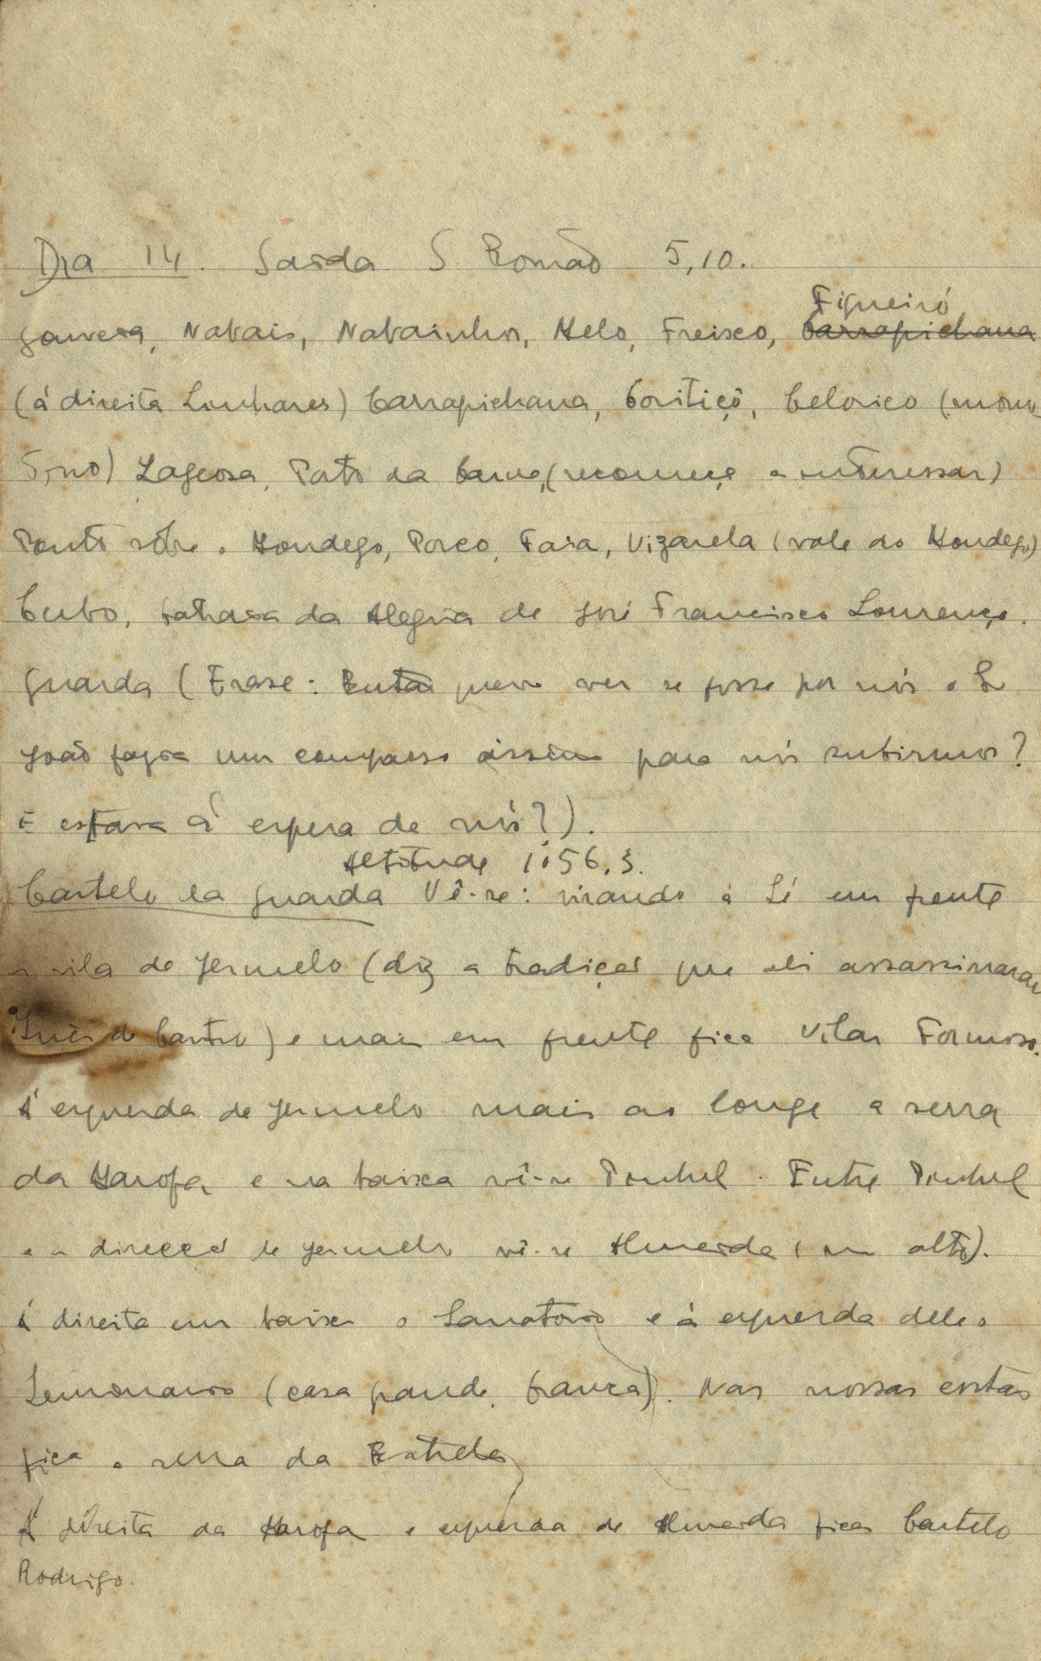 Dia 14. Saida S. Romão 5,10.
Figueiró
Gouveia, Nabais, Nabainhos, Melo, Freixo, Carrapichana
(á direita Linhares) Carrapichana, Cortiçô, Celorico (
) Lageosa, Porto da Carne, (recomeça a interessar)
Ponte sôbre o Mondego, Porco, Faia, Vizarela (vale do Mondego)
Cubo, da Alegria de José Francisco Lourenço.
Guarda (Frase: Então quero ver se fosse por nós o Sr
João fazia um compasso assim para nós subirmos?
E estava á espera de nós?).
Altitude 1056,3.
Castelo da Guarda Vê-se: virando á Sé em frente
a vila de Jermelo (diz a tradição que ali assassinaram
Inês de Castro) e mais em frente fica Vilar Formoso.
Á esquerda de Jermelo mais ao longe a serra
da Marofa e na baixa vê-se Pinhel. Entre Pinhel
e a direcção de Jermelo vê-se Almeida (em alto).
Á direita em baixo o Sanatorio e á esquerda dele o
Seminario (casa grande, branca). Nas nossas costas
fica a serra da Estrela
Á direita da Marofa e esquerda de Almeida fica Castelo
Rodrigo.